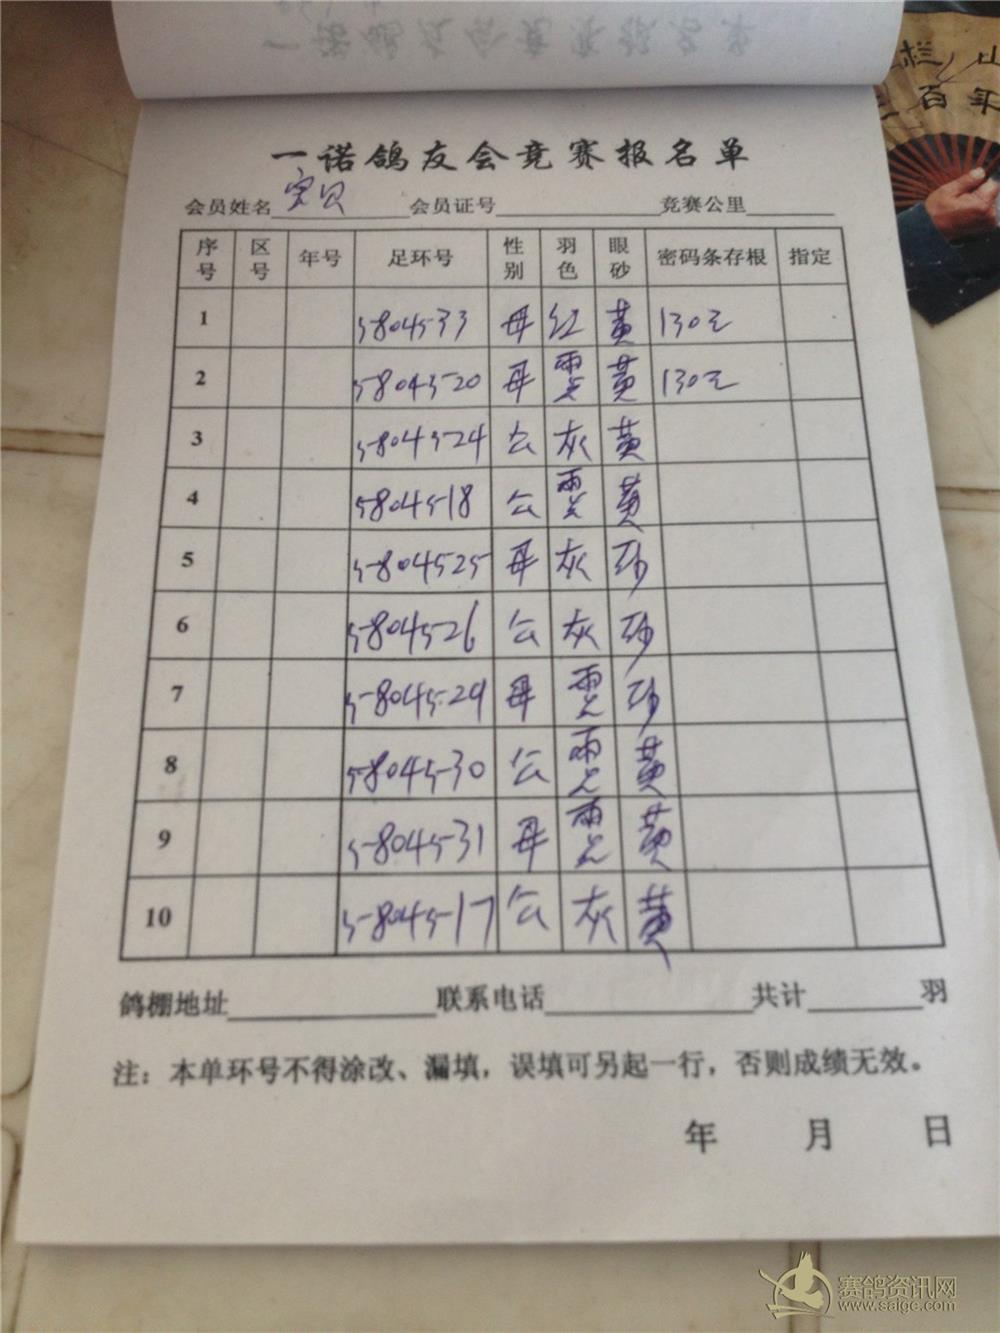 一诺鸽友会竞赛报名单
栏山
百年
会员姓名 宝贝 会员证号 竞赛公里
序号 区号 年号 足环号 性别 羽色 眼砂 密码条存根 指定
1 5804533 母 红 黄 130元
2 5804520 母 雨点 黄 130元
3 5804524 公 灰 黄
4 5804518 公 雨点 黄
5 5804525 母 灰 砂
6 5804526 公 灰 砂
7 5804529 母 雨点 砂
8 5804530 公 雨点 黄
9 5804531 母 雨点 黄
10 5804517 公 灰 黄
鸽棚地址 联系电话 共计 羽
注：本单环号不得涂改、漏填，误填可另起一行，否则成绩无效。
年 月 日
赛鸽资讯网
www.saige.com